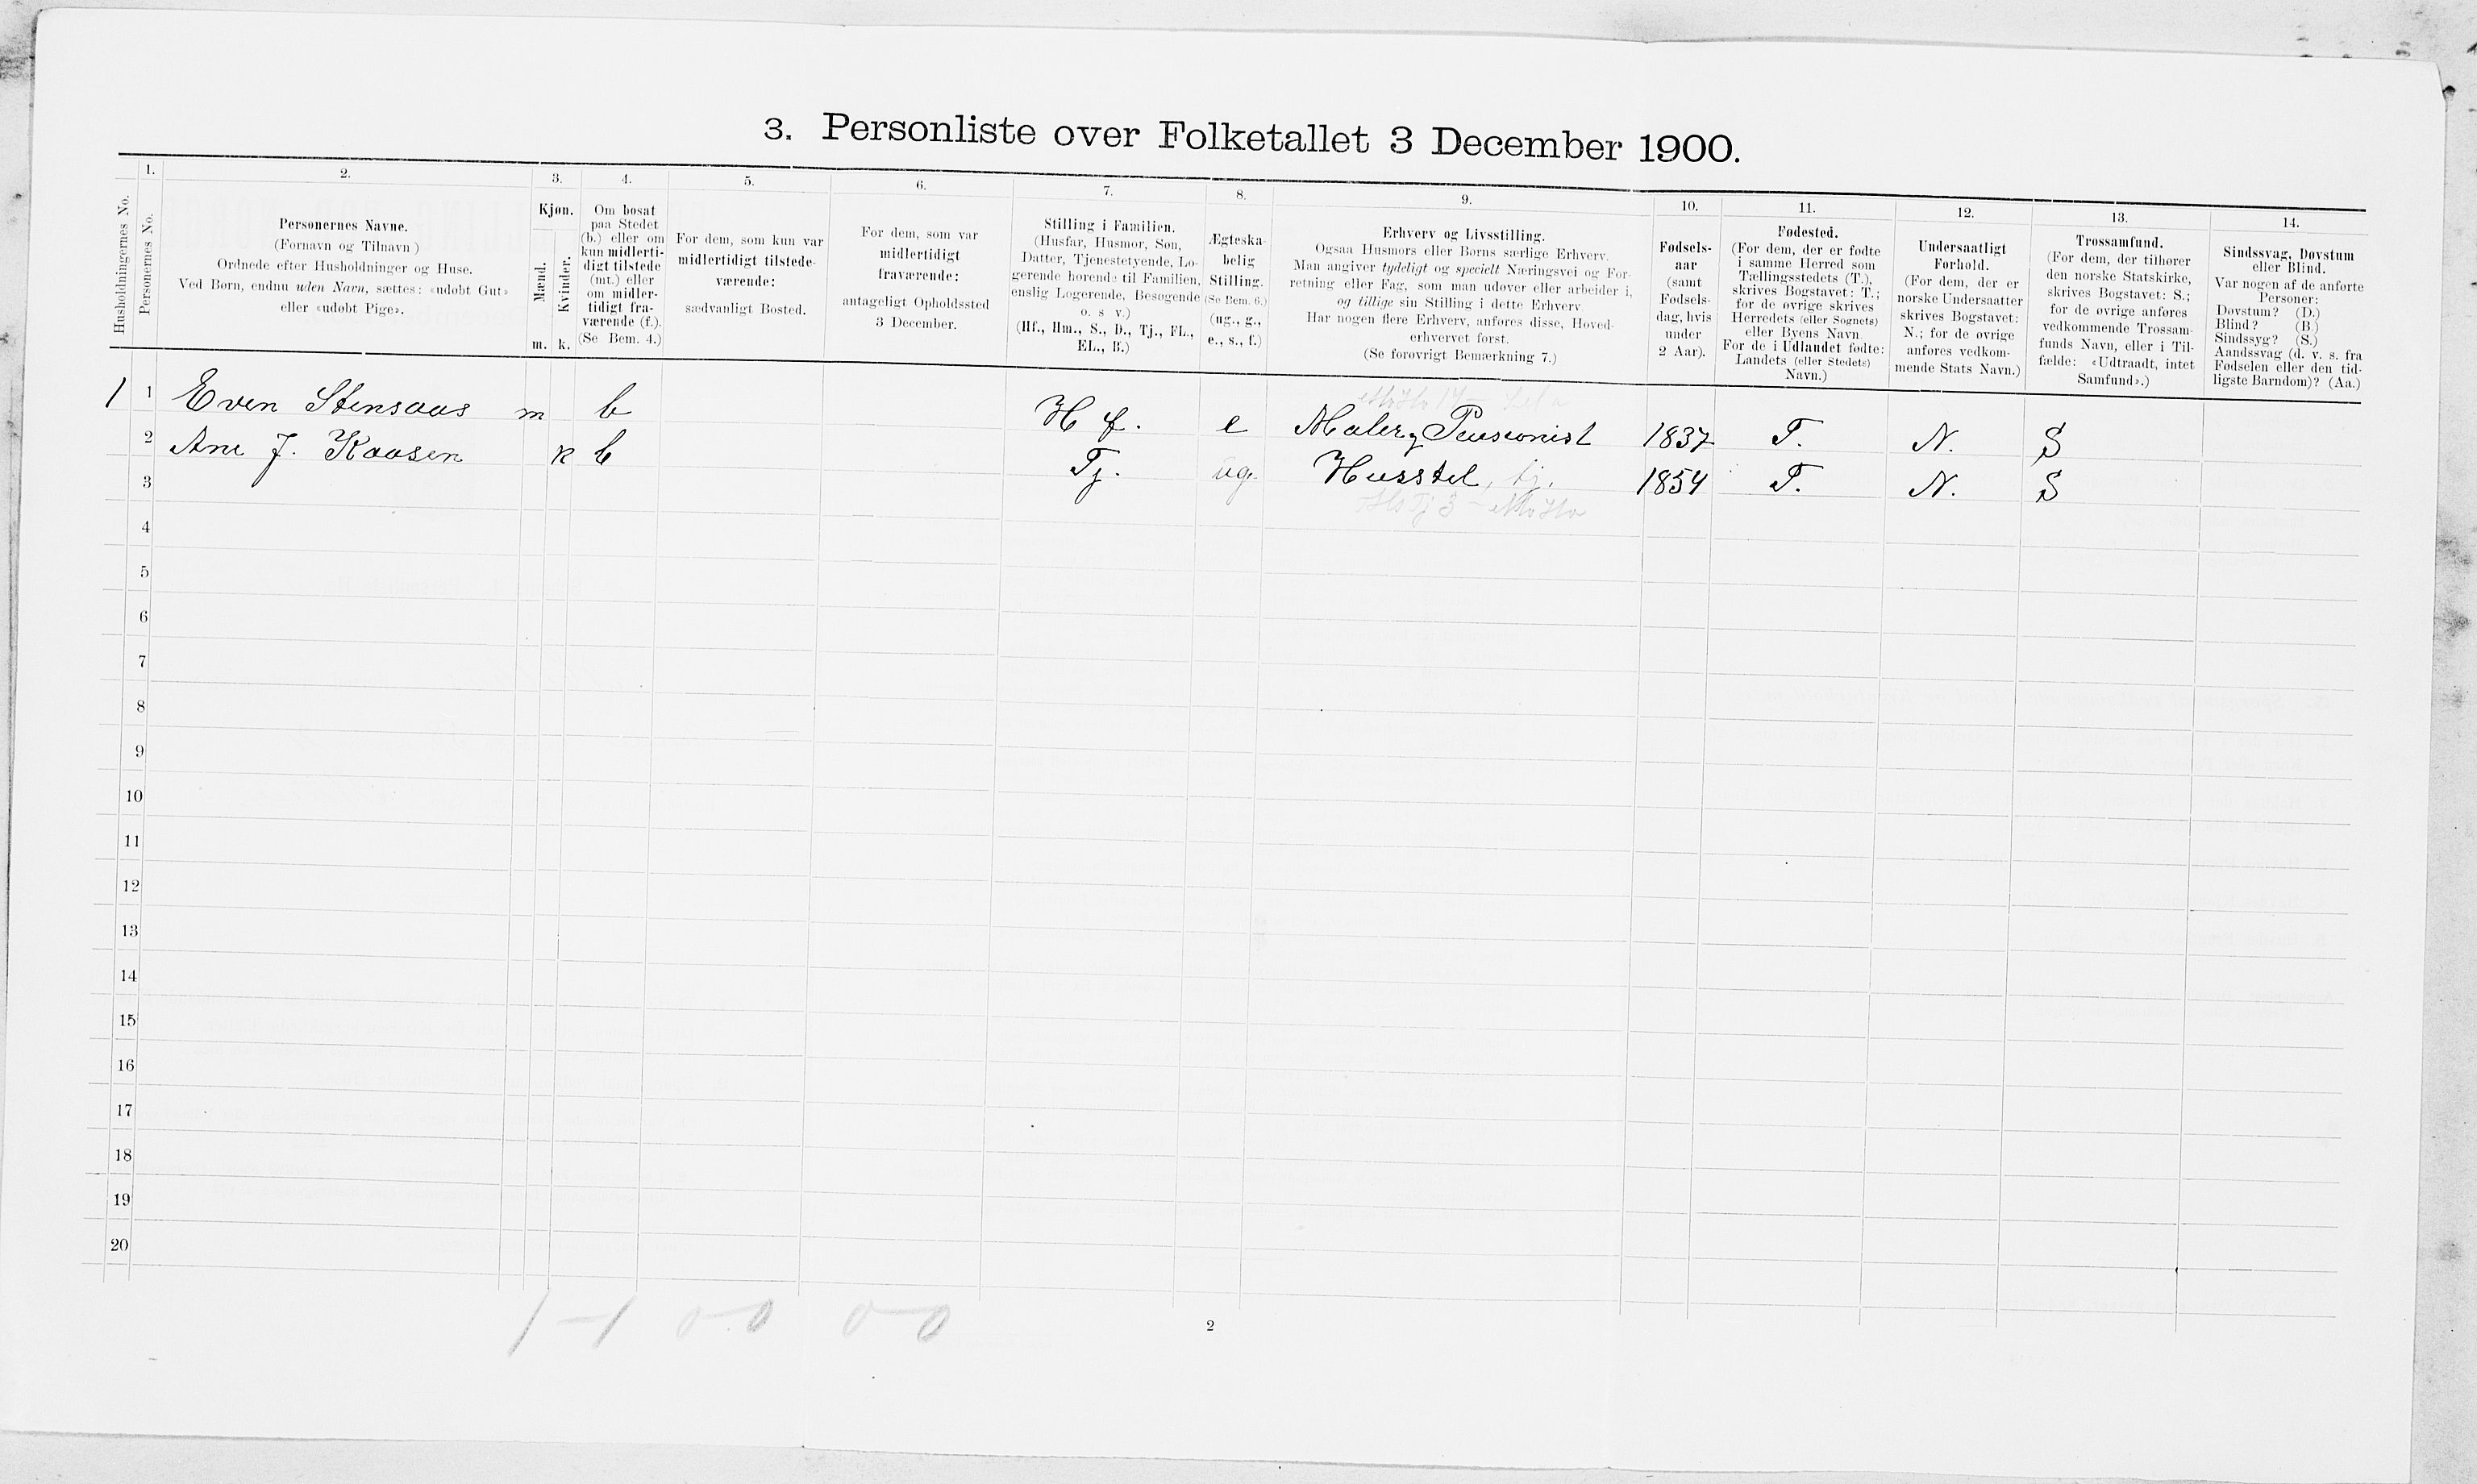 3. Personliste over Folketallet 3 December 1900.
Husholdningernes No.
1.
Personernes No.
2.
Personernes Navne.
(Fornavn og Tilnavn)
Ordnede efter Husholdninger og Huse.
Ved Børn, endnu uden Navn, sættes: «udøbt Gut»
eller «udøbt Pige».
3.
Kjøn.
Mænd.
Kvinder.
m. k.
4.
Om bosat
paa Stedet
(b.) eller om
kun midlerti-
digt tilstede
(mt.) eller
om midler-
tidigt fra-
værende (f.).
(Se Bem. 4.)
5.
For dem, som kun var
midlertidigt tilstede-
værende:
sædvanligt Bosted.
6.
For dem, som var
midlertidigt
fraværende:
antageligt Opholdssted
3 December.
7.
Stilling i Familien.
(Husfar, Husmor, Søn,
Datter, Tjenestetyende, Lo-
gerende hørende til Familien,
enslig Logerende, Besøgende
o. s v.)
(Hf., Hm., S., D., Tj., FL.,
EL., B.)
8.
Ægteska-
belig
Stilling.
(Se Bem. 6.)
(ug., g.,
e., s., f.)
9.
Erhverv og Livsstilling.
Ogsaa Husmors eller Børns særlige Erhverv.
Man angiver tydeligt og specielt Næringsvei og For-
retning eller Fag, som man udøver eller arbeider i,
og tillige sin Stilling i dette Erhverv
Har nogen flere Erhverv, anføres disse, Hoved-
erhvervet først.
(Se forøvrigt Bemærkning 7.)
10.
Fødsels-
aar
(samt
Fødsels-
dag, hvis
under
2 Aar).
11.
Fødested.
(For dem, der er fødte
i samme Herred som
Tællingsstedets (T.),
skrives Bogstavet: T.;
for de øvrige skrives
Herredets (eller Sognets)
eller Byens Navn
For de i Udlandet fødte:
Landets (eller Stedets)
Navn.)
12.
Undersaatligt
Forhold.
(For dem, der er
norske Undersaatter
skrives Bogstavet:
N.; for de øvrige
anføres vedkom-
mende Stats Navn.)
13.
Trossamfund.
(For dem, der tilhører
den norske Statskirke,
skrives Bogstavet: S.;
for de øvrige anføres
vedkommende Trossam-
funds Navn, eller i Til-
fælde: «Udtraadt, intet
Samfund».)
14.
Sindssvag, Døvstum
eller Blind.
Var nogen af de anførte
Personer:
Døvstum? (D.)
Blind? (B.)
Sindssyg? (S.)
Aandssvag (d. v. s. fra
Fødselen eller den tid-
ligste Barndom)? (Aa.)
1 1 Even Stensaas m b H f. e Maler, Pensionist 1837 T. N. S
2 Ane J. Kaasen k b Tj. ug. Husstel, tj. 1854 T. N. S
3
4
5
6
7
8
9
10
11
12
13
14
15
16
17
18
19
20
1-1 0-0 0-0
2